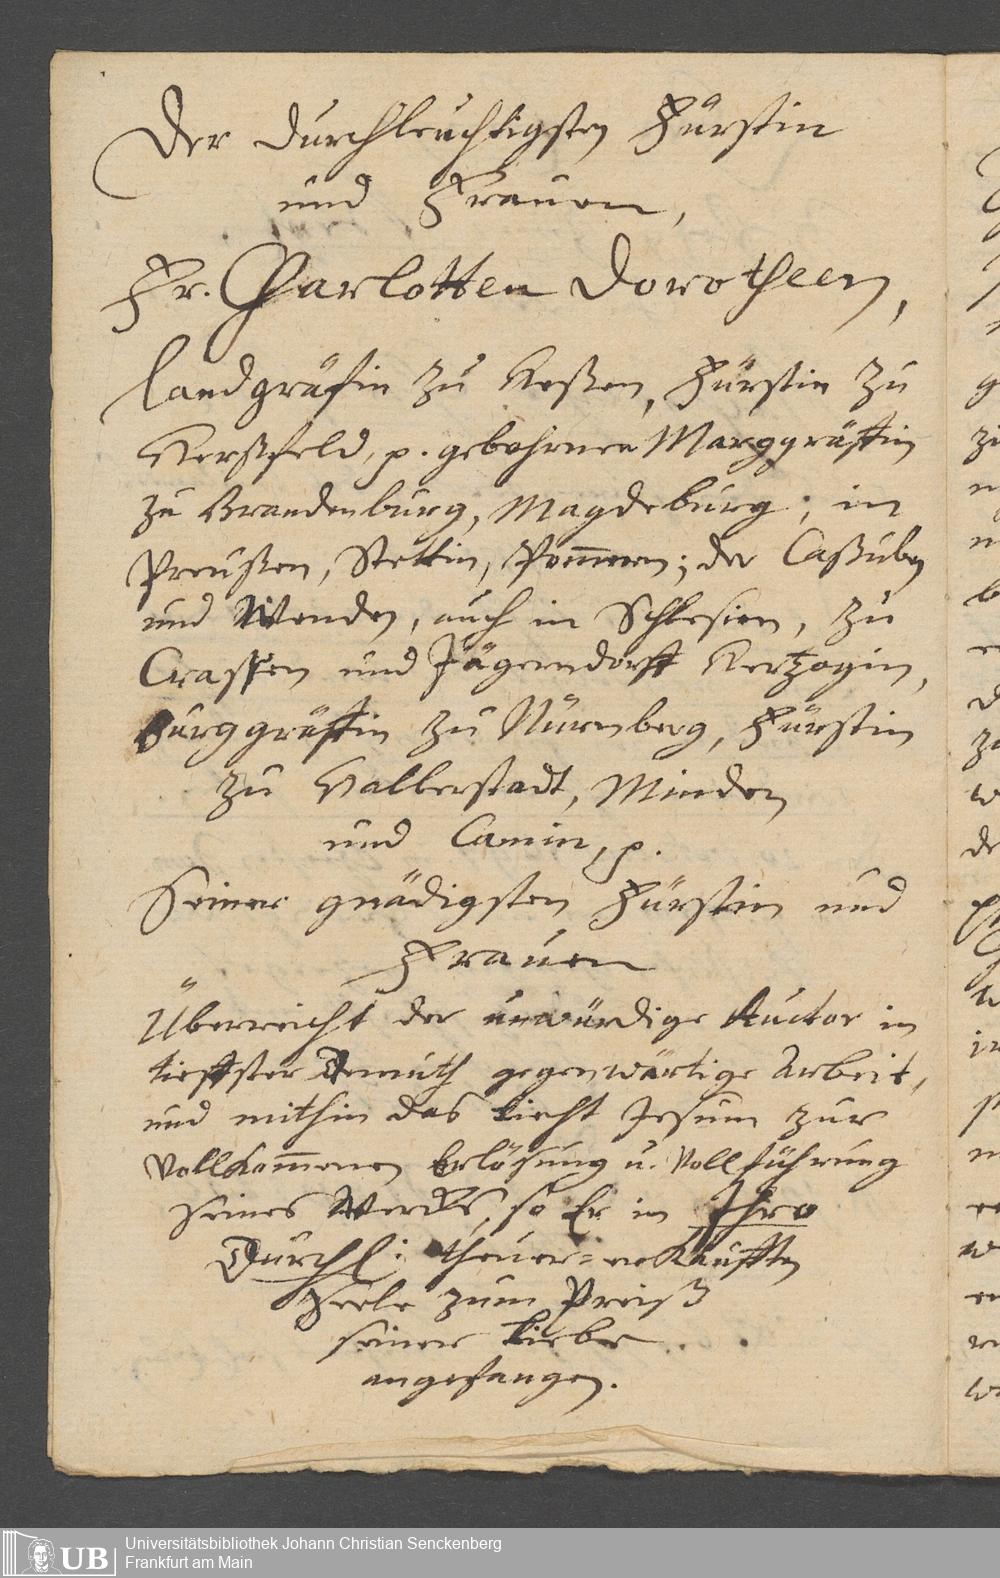 Der Durchleuchtigsten Fürstin
und Frauen,
Fr. Charlotten Dorotheen,
Landgräfin zu Heßen, Fürstin zu
Herßfeld, p. gebohrnen Marggräffin
zu Brandenburg, Magdeburg; in
Preußen, Stettin, Pom̅ern; der Caßuben
und Wenden, auch in Schlesien, zu
Crassen und Jägerndorff Hertzogin,
Burggräffin zu Nürnberg, Fürstin
zu Halberstadt, Minden
und Camin, p.
Seiner gnädigsten Fürstin und
Frauen
Überreicht der unwürdige Auctor in
tieffster Demuth gegenwärtige Arbeit,
und mithin das Liecht Jesum zur
Vollkom̅enen Erlösung u. Vollführung
seines Wercks, so Er in Ihro
Durchl: theuer=erkaufften
Seele zum Preiß
seiner Liebe
angefangen.
UB Universitätsbibliothek Johann Christian Senckenberg
Frankfurt am Main